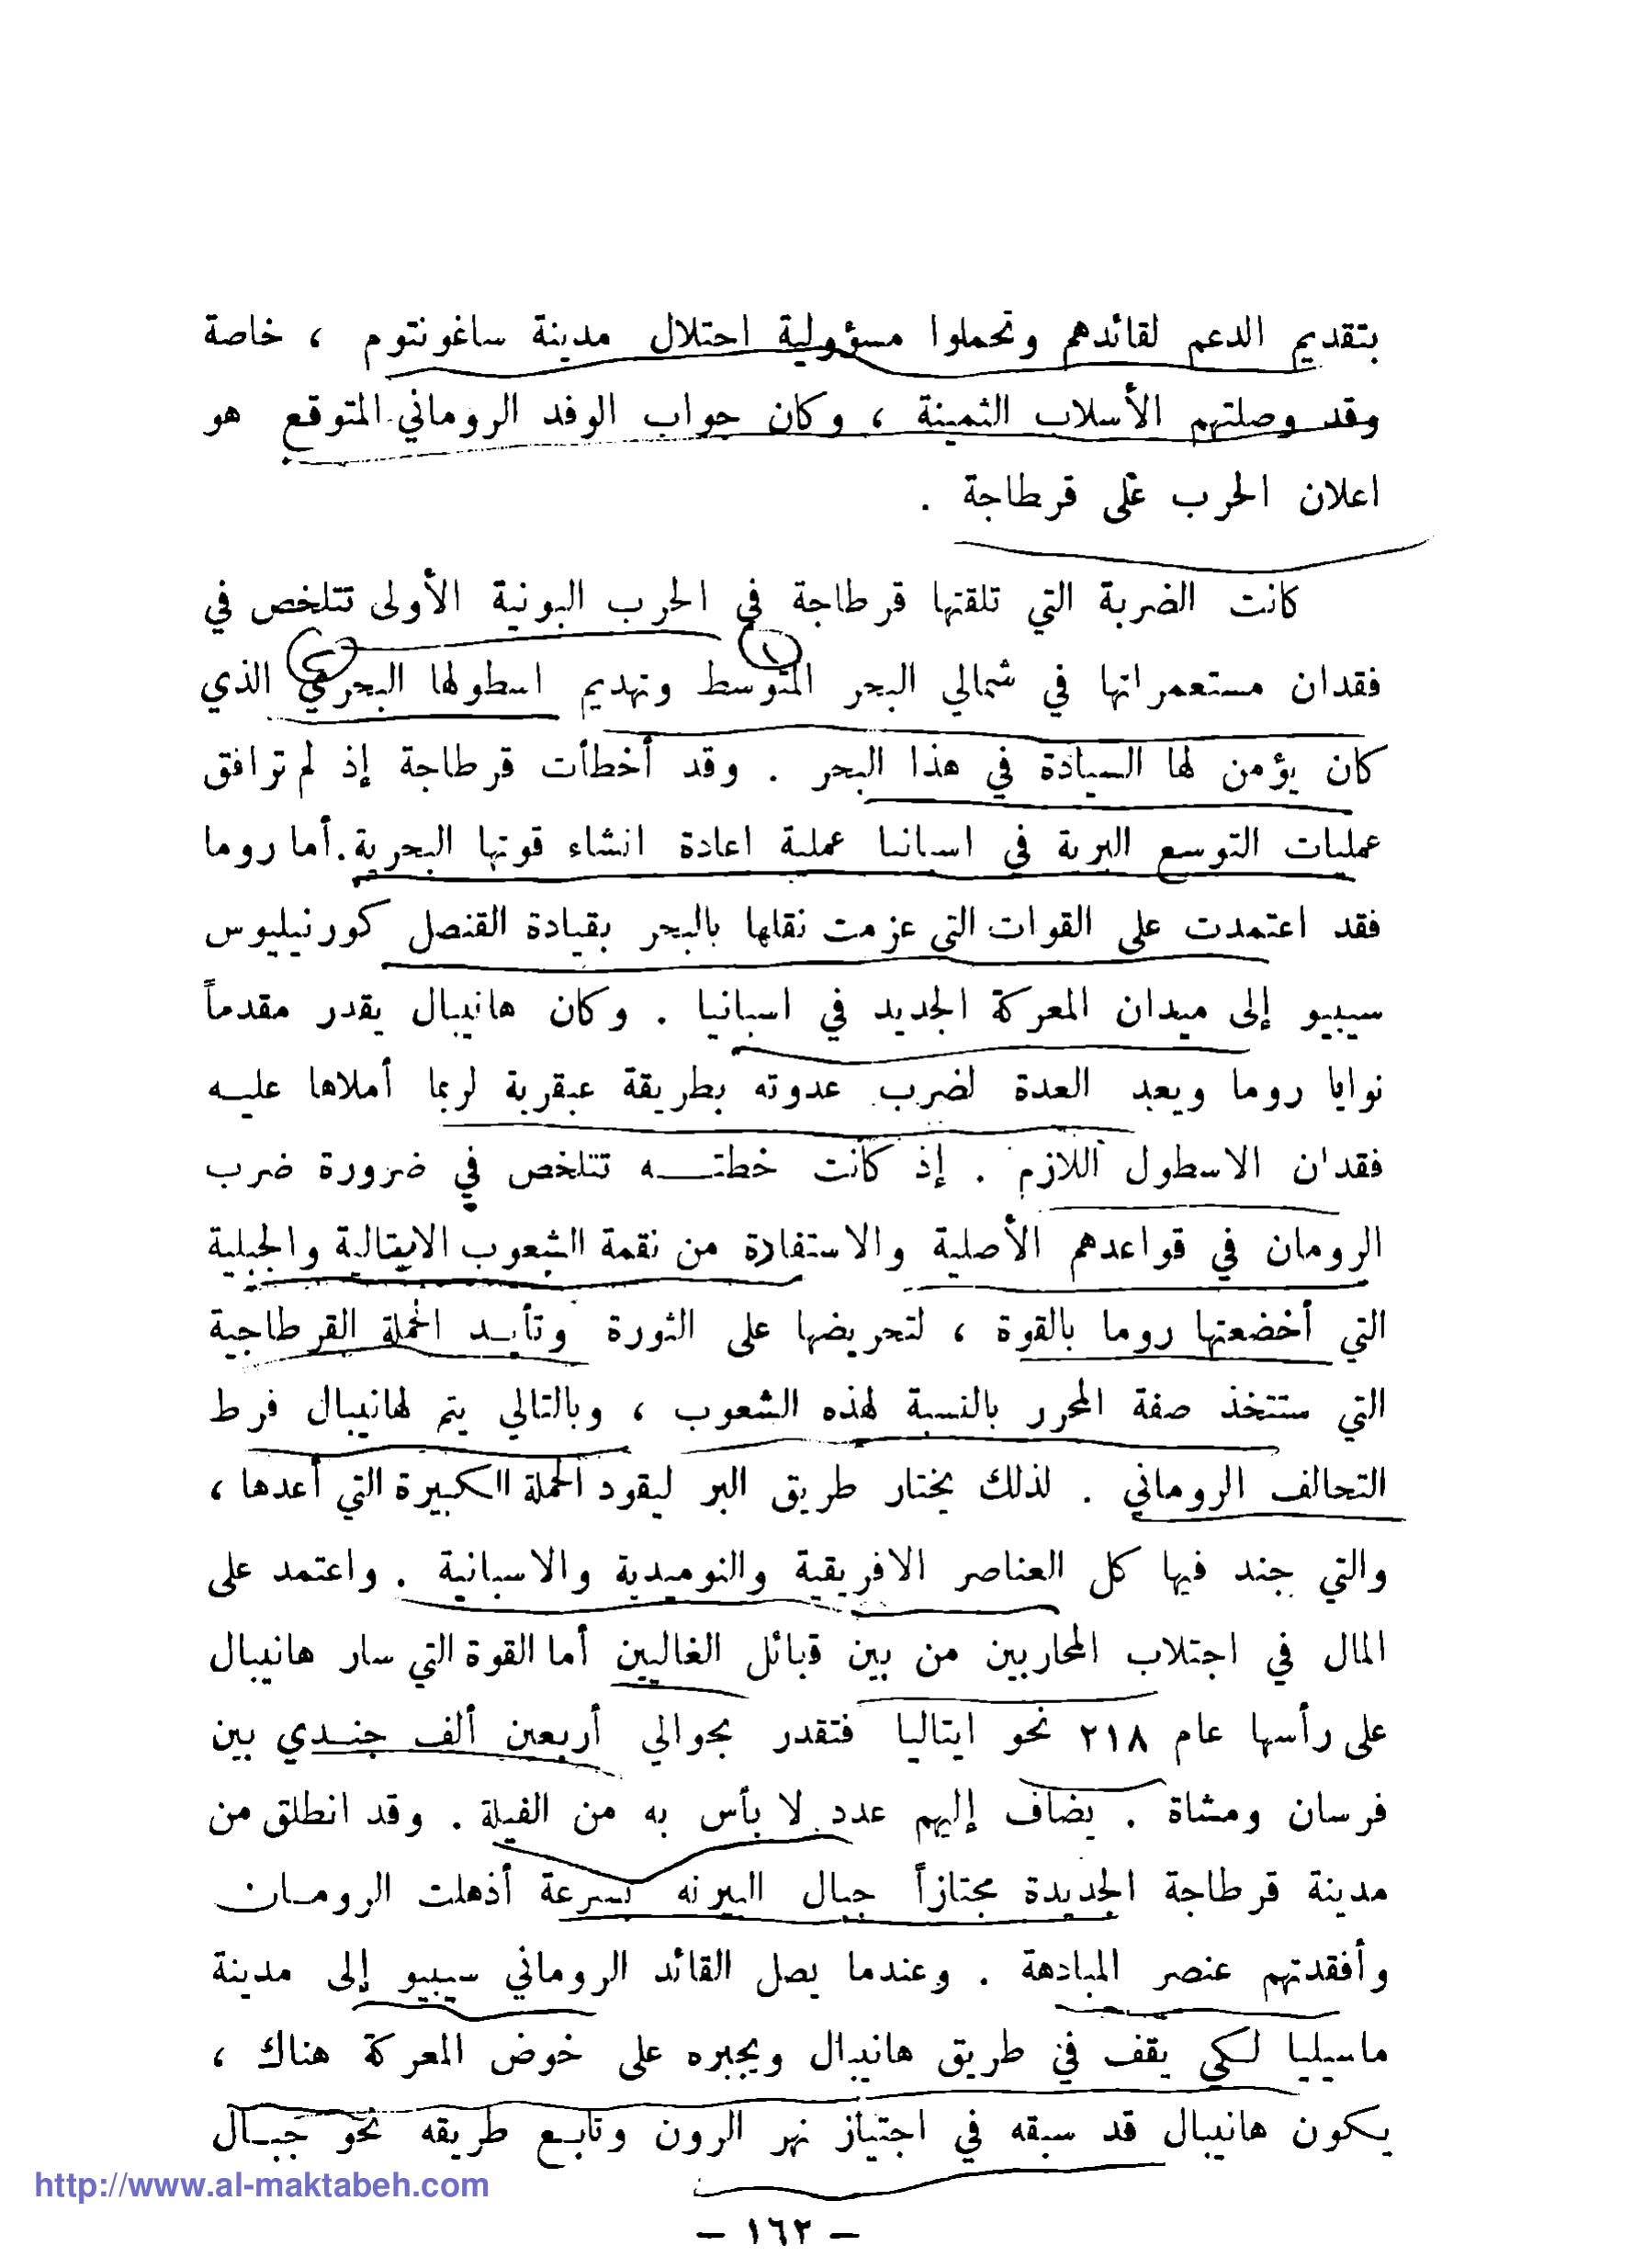 بتقديم الدعم لقائدهم وتحملوا مسؤولية احتلال مدينة ساغونتوم ، خاصة
وقد وصلتهم الأسلاب الثمينة ، وكان جواب الوفد الروماني المتوقع هو
اعلان الحرب على قرطاجة .
كانت الضربة التي تلقتها قرطاجة في الحرب البونية الأولى تتلخص في
فقدان مستعمراتها في شمالي البحر المتوسط وتهديم اسطولها البحري الذي
كان يؤمن لها السيادة في هذا البحر . وقد أخطأت قرطاجة إذ لم ترافق
عمليات التوسع البرية في اسبانيا عملية اعادة انشاء قوتها البحرية . أما روما
فقد اعتمدت على القوات التي عزمت نقلها بالبحر بقيادة القنصل كورنيليوس
سيبيو إلى ميدان المعركة الجديد في اسبانيا . وكان هانيبال يقدر مقدماً
نوايا روما ويعد العدة لضرب عدوته بطريقة عبقرية لربما أملاها عليه
فقدان الاسطول اللازم . إذ كانت خطته تتلخص في ضرورة ضرب
الرومان في قواعدهم الأصلية والاستفادة من نقمة الشعوب الايتالية والجبلية
التي أخضعتها روما بالقوة ، لتحريضها على الثورة وتأييد الحملة القرطاجية
التي ستتخذ صفة المحرر بالنسبة لهذه الشعوب ، وبالتالي يتم لهانيبال فرط
التحالف الروماني . لذلك يختار طريق البر ليقود الحملة الكبيرة التي أعدها ،
والتي جند فيها كل العناصر الافريقية والنوميدية والاسبانية . واعتمد على
المال في اجتلاب المحاربين من بين قبائل الغاليين أما القوة التي سار هانيبال
على رأسها عام ٢١٨ نحو ايتاليا فتقدر بحوالي أربعين ألف جندي بين
فرسان ومشاة . يضاف إليهم عدد لا بأس به من الفيلة . وقد انطلق من
مدينة قرطاجة الجديدة مجتازاً جبال البيرنه بسرعة أذهلت الرومان
وأفقدتهم عنصر المبادهة . وعندما يصل القائد الروماني سيبيو إلى مدينة
ماسيليا لكي يقف في طريق هانيبال ويجبره على خوض المعركة هناك ،
يكون هانيبال قد سبقه في اجتياز نهر الرون وتابع طريقه نحو جبال
http://www.al-maktabeh.com
– ١٦٢ –